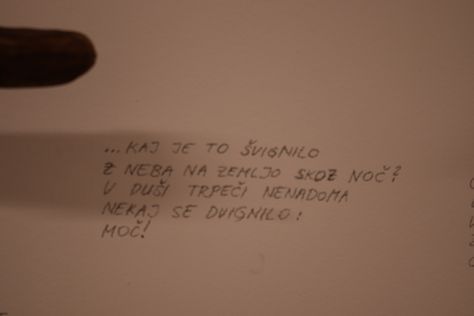 ...KAJ JE TO ŠVIGNILO
Z NEBA NA ZEMLJO SKOZ NOČ?
V DUŠI TRPEČI NENADOMA
NEKAJ SE DVIGNILO:
MOČ!